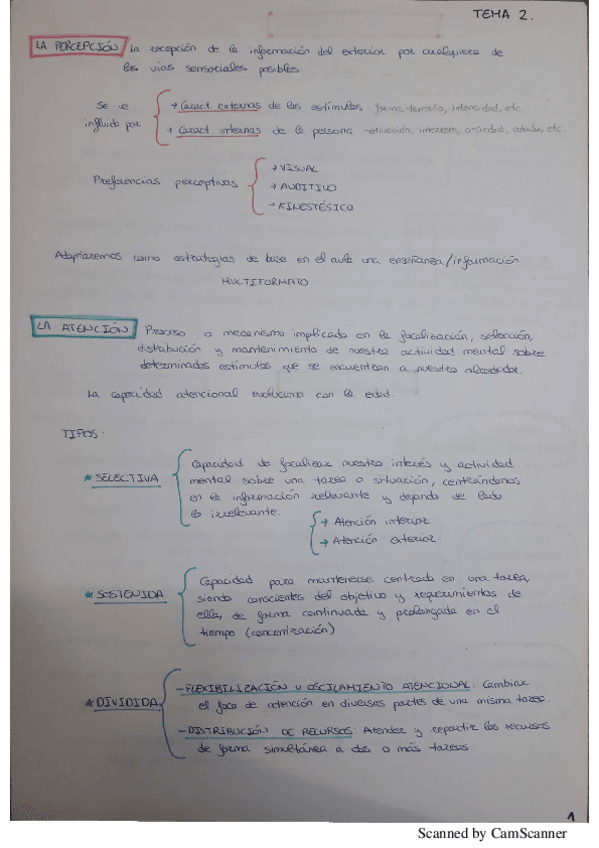 TEMA 2.
LA PERCEPCIÓN La recepción de la información del exterior por cualquiera de
las vías sensoriales posibles
Se ve
influido por
→ Caract. externas de los estímulos, forma, tamaño, intensidad, etc
→ Caract. internas de la persona motivación, intereses, ansiedad, etc
Preferencias perceptivas
→ VISUAL
→ AUDITIVO
→ KINESTÉSICO
Adoptaremos como estrategias de base en el aula una enseñanza/información
MULTIFORMATO
LA ATENCIÓN Proceso o mecanismo implicado en la focalización, selección,
distribución y mantenimiento de nuestra actividad mental sobre
determinados estímulos que se encuentran a nuestro alrededor.
La capacidad atencional evoluciona con la edad.
TIPOS:
* SELECTIVA
Capacidad de focalizar nuestro interés y actividad
mental sobre una tarea o situación, centrándonos
en la información relevante y dejando de lado
lo irrelevante.
→ Atención interior
→ Atención exterior
* SOSTENIDA
Capacidad para mantenerse centrado en una tarea,
siendo conscientes del objetivo y requerimientos de
ella, de forma continuada y prolongada en el
tiempo (concentración)
* DIVIDIDA
- FLEXIBILIZACIÓN U OSCILAMIENTO ATENCIONAL: Cambiar
el foco de atención en diversas partes de una misma tarea.
- DISTRIBUCIÓN DE RECURSOS: Atender y repartir los recursos
de forma simultánea a dos o más tareas.
1
Scanned by CamScanner